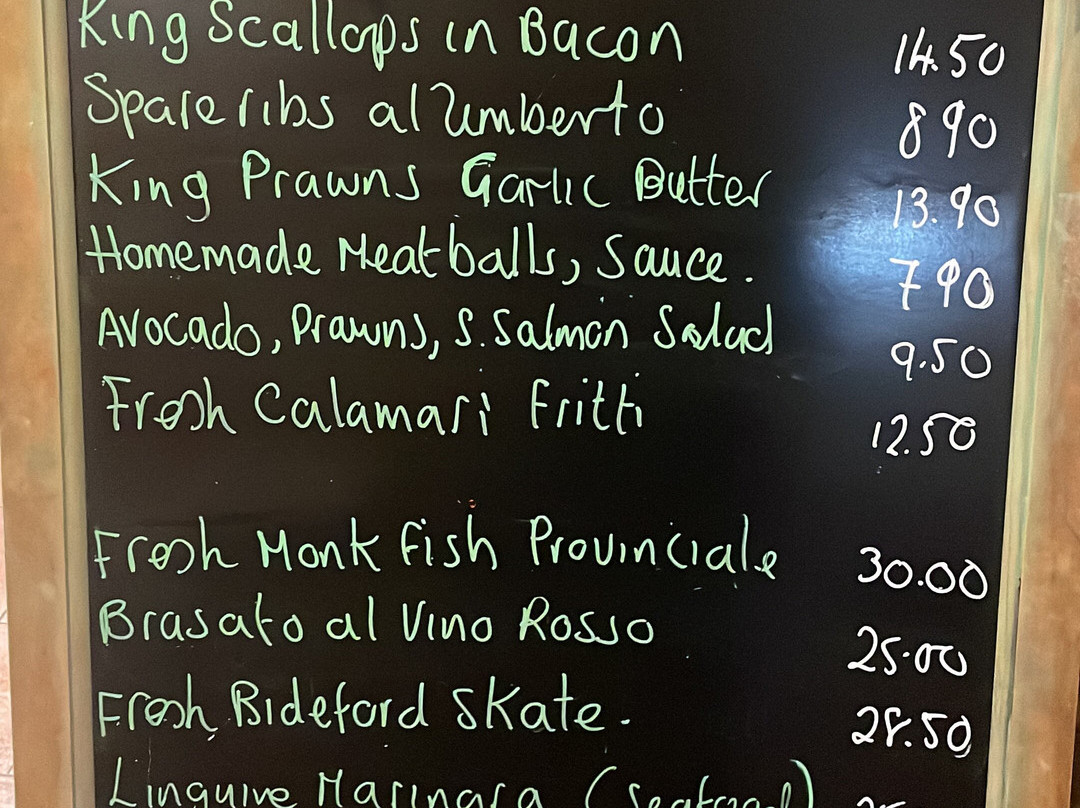 King Scallops in Bacon 14.50
Spare ribs al Umberto 8 90
King Prawns Garlic Butter 13.90
Homemade Meatballs, Sauce. 7 90
Avocado, Prawns, S. Salmon Salad 9.50
Fresh Calamari Fritti 12.50
Fresh Monk Fish Provinciale 30.00
Brasato al Vino Rosso 25.00
Fresh Bideford Skate. 28.50
Linguine Marinara (Seafood)